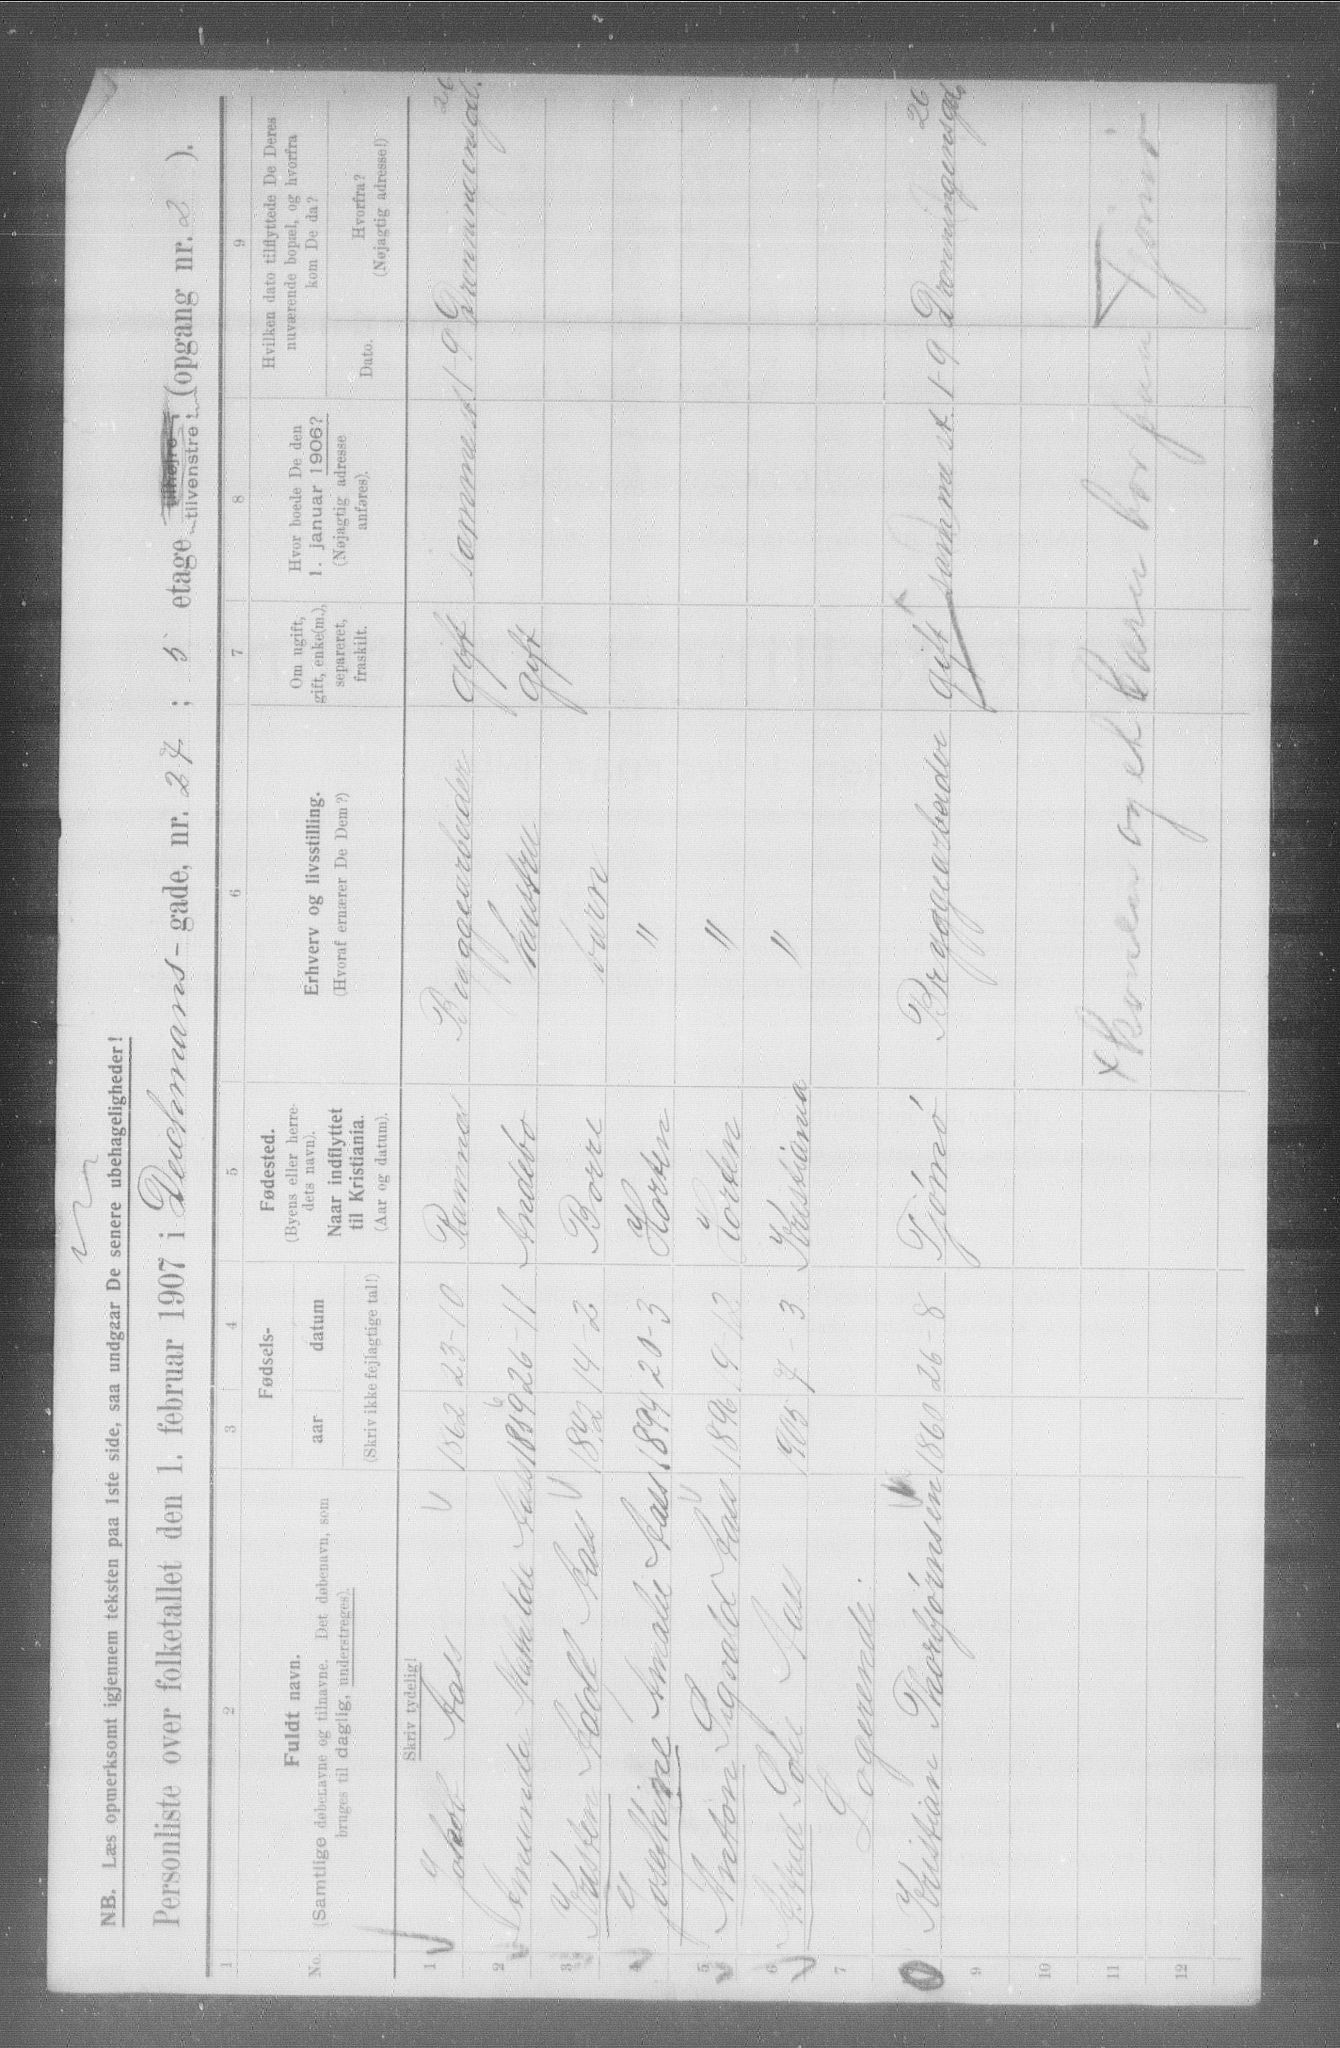 NB. Læs opmerksomt igjennem teksten paa 1ste side, saa undgaar De senere ubehageligheder!
Personliste over folketallet den 1. februar 1907 i Deichmans-gade, nr. 27; 5 etage tilhøjre, tilvenstre! (opgang nr. 2 ).
1 2 3 4 5 6 7 8 9
No.
Fuldt navn.
(Samtlige døbenavne og tilnavne. Det døbenavn, som
bruges til daglig, understreges).
Fødsels-
aar datum
(Skriv ikke fejlagtige tal!)
Fødested.
(Byens eller herre-
dets navn).
Naar indflyttet
til Kristiania.
(Aar og datum).
Erhverv og livsstilling.
(Hvoraf ernærer De Dem?)
Om ugift,
gift, enke(m.),
separeret,
fraskilt.
Hvor boede De den
1. januar 1906?
(Nøjagtig adresse
anføres).
Hvilken dato tilflyttede De Deres
nuværende bopæl, og hvorfra
kom De da?
Dato.
Hvorfra?
(Nøjagtig adresse!)
Skriv tydelig!
1 Jakob Aass 1862 23-10 Ramnæs Bryggearbeider gift samme st 1 9 Dronningensgd. 26
2 Amunda Mathilde Aass 26-11 Andebo hustru gift
3 Karsten Adolf Aass 1892 14-2 Borre barn
4 Josefhine Amalie Aass 1894 20-3 Horten "
5 Anton Sigvald Aass 1896 9-12 Horten "
6 Astrid Sofie Aass 1905 7-3 Kristiania "
7 Logerende
Kristian Thorbjørnsen 1860 26-8 Tjömö Bryggearbeider gift samme st. 1-9 Dronningensgd 26
9
10
11 x Konen og et barn bor paa Tjømø
12